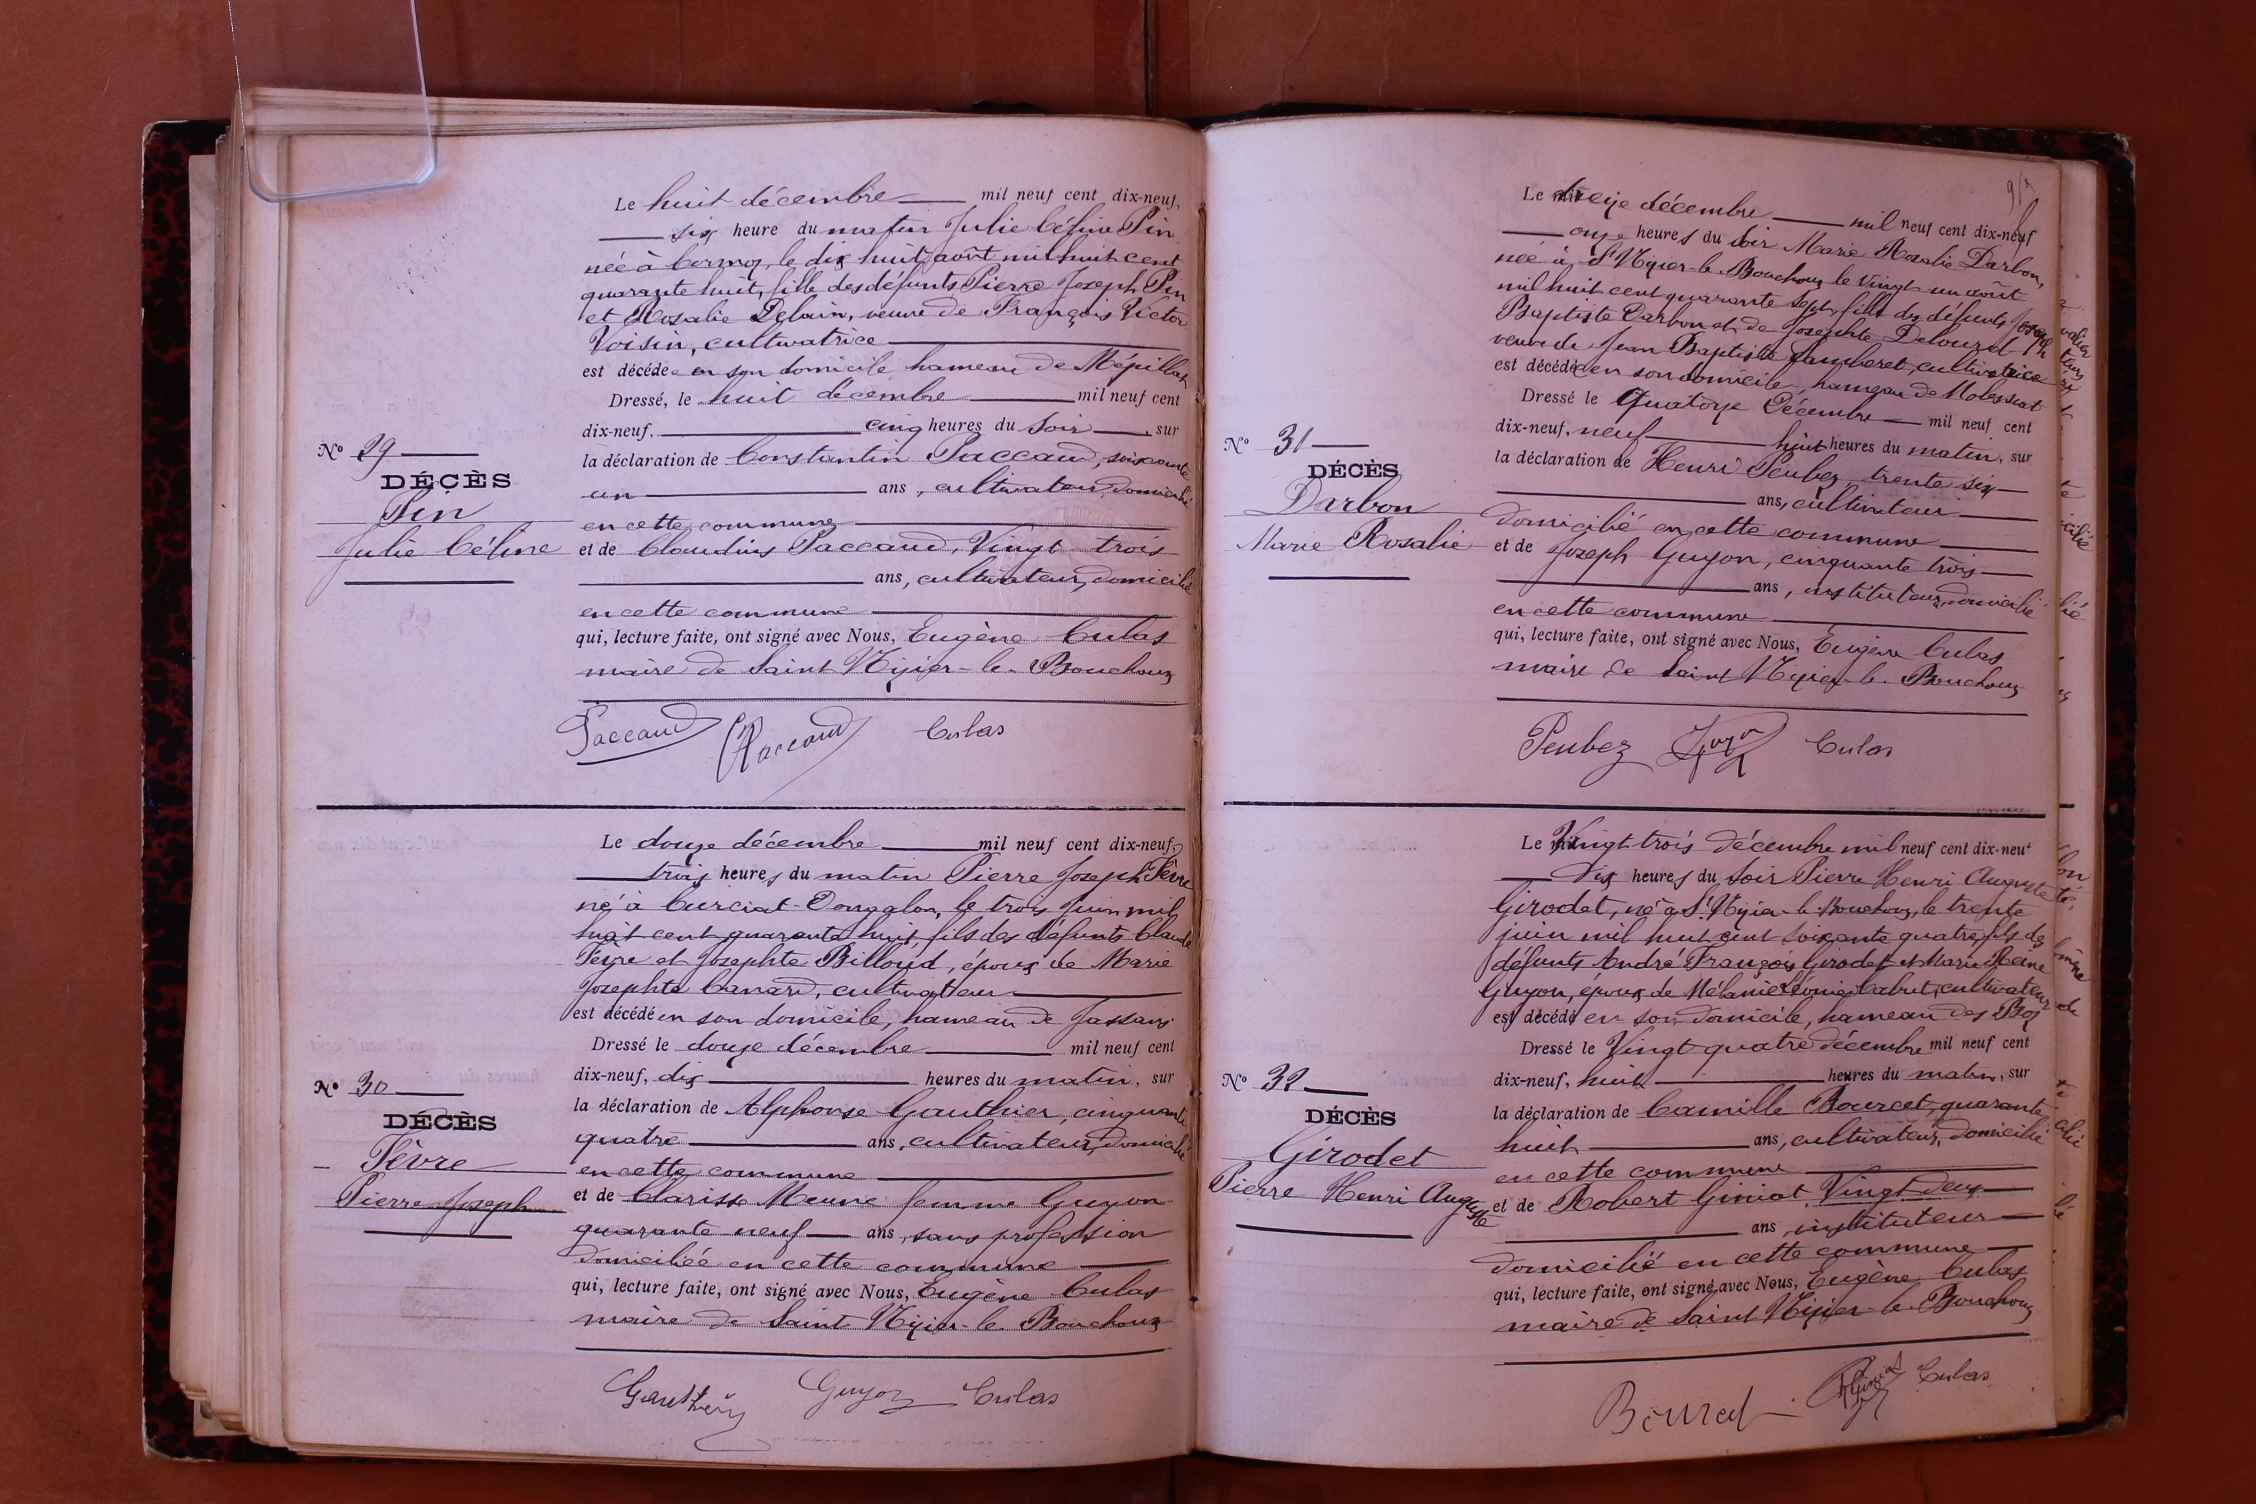 Le huit décembre mil neuf cent dix-neuf,
six heure du matin Julie Céline Pin
née à Cormoz, le dix huit août mil huit cent
quarante huit, fille des défunts Pierre Joseph Pin
et Rosalie Delain, veuve de François Victor
Voisin, cultivatrice
est décédée en son domicile, hameau de Mépillat
Dressé, le huit décembre mil neuf cent
dix-neuf, cinq heures du soir, sur
la déclaration de Constantin Paccaud, soixante
un ans, cultivateur, domicilié
en cette commune
et de Claudius Paccaud, Vingt trois
ans, cultivateur, domicilié
en cette commune
qui, lecture faite, ont signé avec Nous, Eugène Culas
maire de Saint Nizier-le-Bouchoux
N° 29
DÉCÈS
Pin
Julie Céline
Paccaud Paccaud Culas
Le douze décembre mil neuf cent dix-neuf,
trois heures du matin Pierre Joseph Fèvre
né à Curciat-Dongalon, le trois juin mil
huit cent quarante huit, fils des défunts Claude
Fèvre et Josephte Billoud, époux de Marie
Josephte Canard, cultivateur
est décédé en son domicile, hameau de Jassans
Dressé le douze décembre mil neuf cent
dix-neuf, dix heures du matin, sur
la déclaration de Alphonse Gauthier, cinquante
quatre ans, cultivateur, domicilié
en cette commune
et de Clarisse Meune femme Guyon
quarante neuf ans, sans profession
domiciliée en cette commune
qui, lecture faite, ont signé avec Nous, Eugène Culas
maire de Saint Nizier-le-Bouchoux
N° 30
DÉCÈS
Fèvre
Pierre Joseph
Gauthier Guyon Culas
Le treize décembre mil neuf cent dix-neuf
onze heures du soir Marie Rosalie Darbon,
née à St Nizier-le-Bouchoux le Vingt un août
mil huit cent quarante sept, fille des défunts Joseph
Baptiste Darbon et de Josephte
veuve de Jean Baptiste Jambaret, cultivatrice
est décédée en son domicile, hameau de Molessiat
Dressé le Quatorze Décembre mil neuf cent
dix-neuf, neuf huit heures du matin, sur
la déclaration de Henri Peubez trente six
ans, cultivateur
domicilié en cette commune
et de Joseph Guyon, cinquante trois
ans, instituteur, domicilié
en cette commune
qui, lecture faite, ont signé avec Nous, Eugène Culas
maire de Saint Nizier-le-Bouchoux
N° 31
DÉCÈS
Darbon
Marie Rosalie
Peubez Guyon Culas
Le Vingt trois décembre mil neuf cent dix-neuf
Dix heures du soir Pierre Henri Auguste
Girodet, né à St Nizier-le-Bouchoux, le trente
juin mil huit cent soixante quatre, fils des
défunts André François Girodet et Marie
Guyon, époux de Mélanie Léonie Cabut, cultivateur
est décédé en son domicile, hameau des
Dressé le Vingt quatre décembre mil neuf cent
dix-neuf, huit heures du matin, sur
la déclaration de Camille Bourcet, quarante
huit ans, cultivateur, domicilié
en cette commune
et de Robert Giniat Vingt deux
ans, instituteur
domicilié en cette commune
qui, lecture faite, ont signé avec Nous, Eugène Culas
maire de Saint Nizier-le-Bouchoux
N° 32
DÉCÈS
Girodet
Pierre Henri Auguste
Bourcet Culas